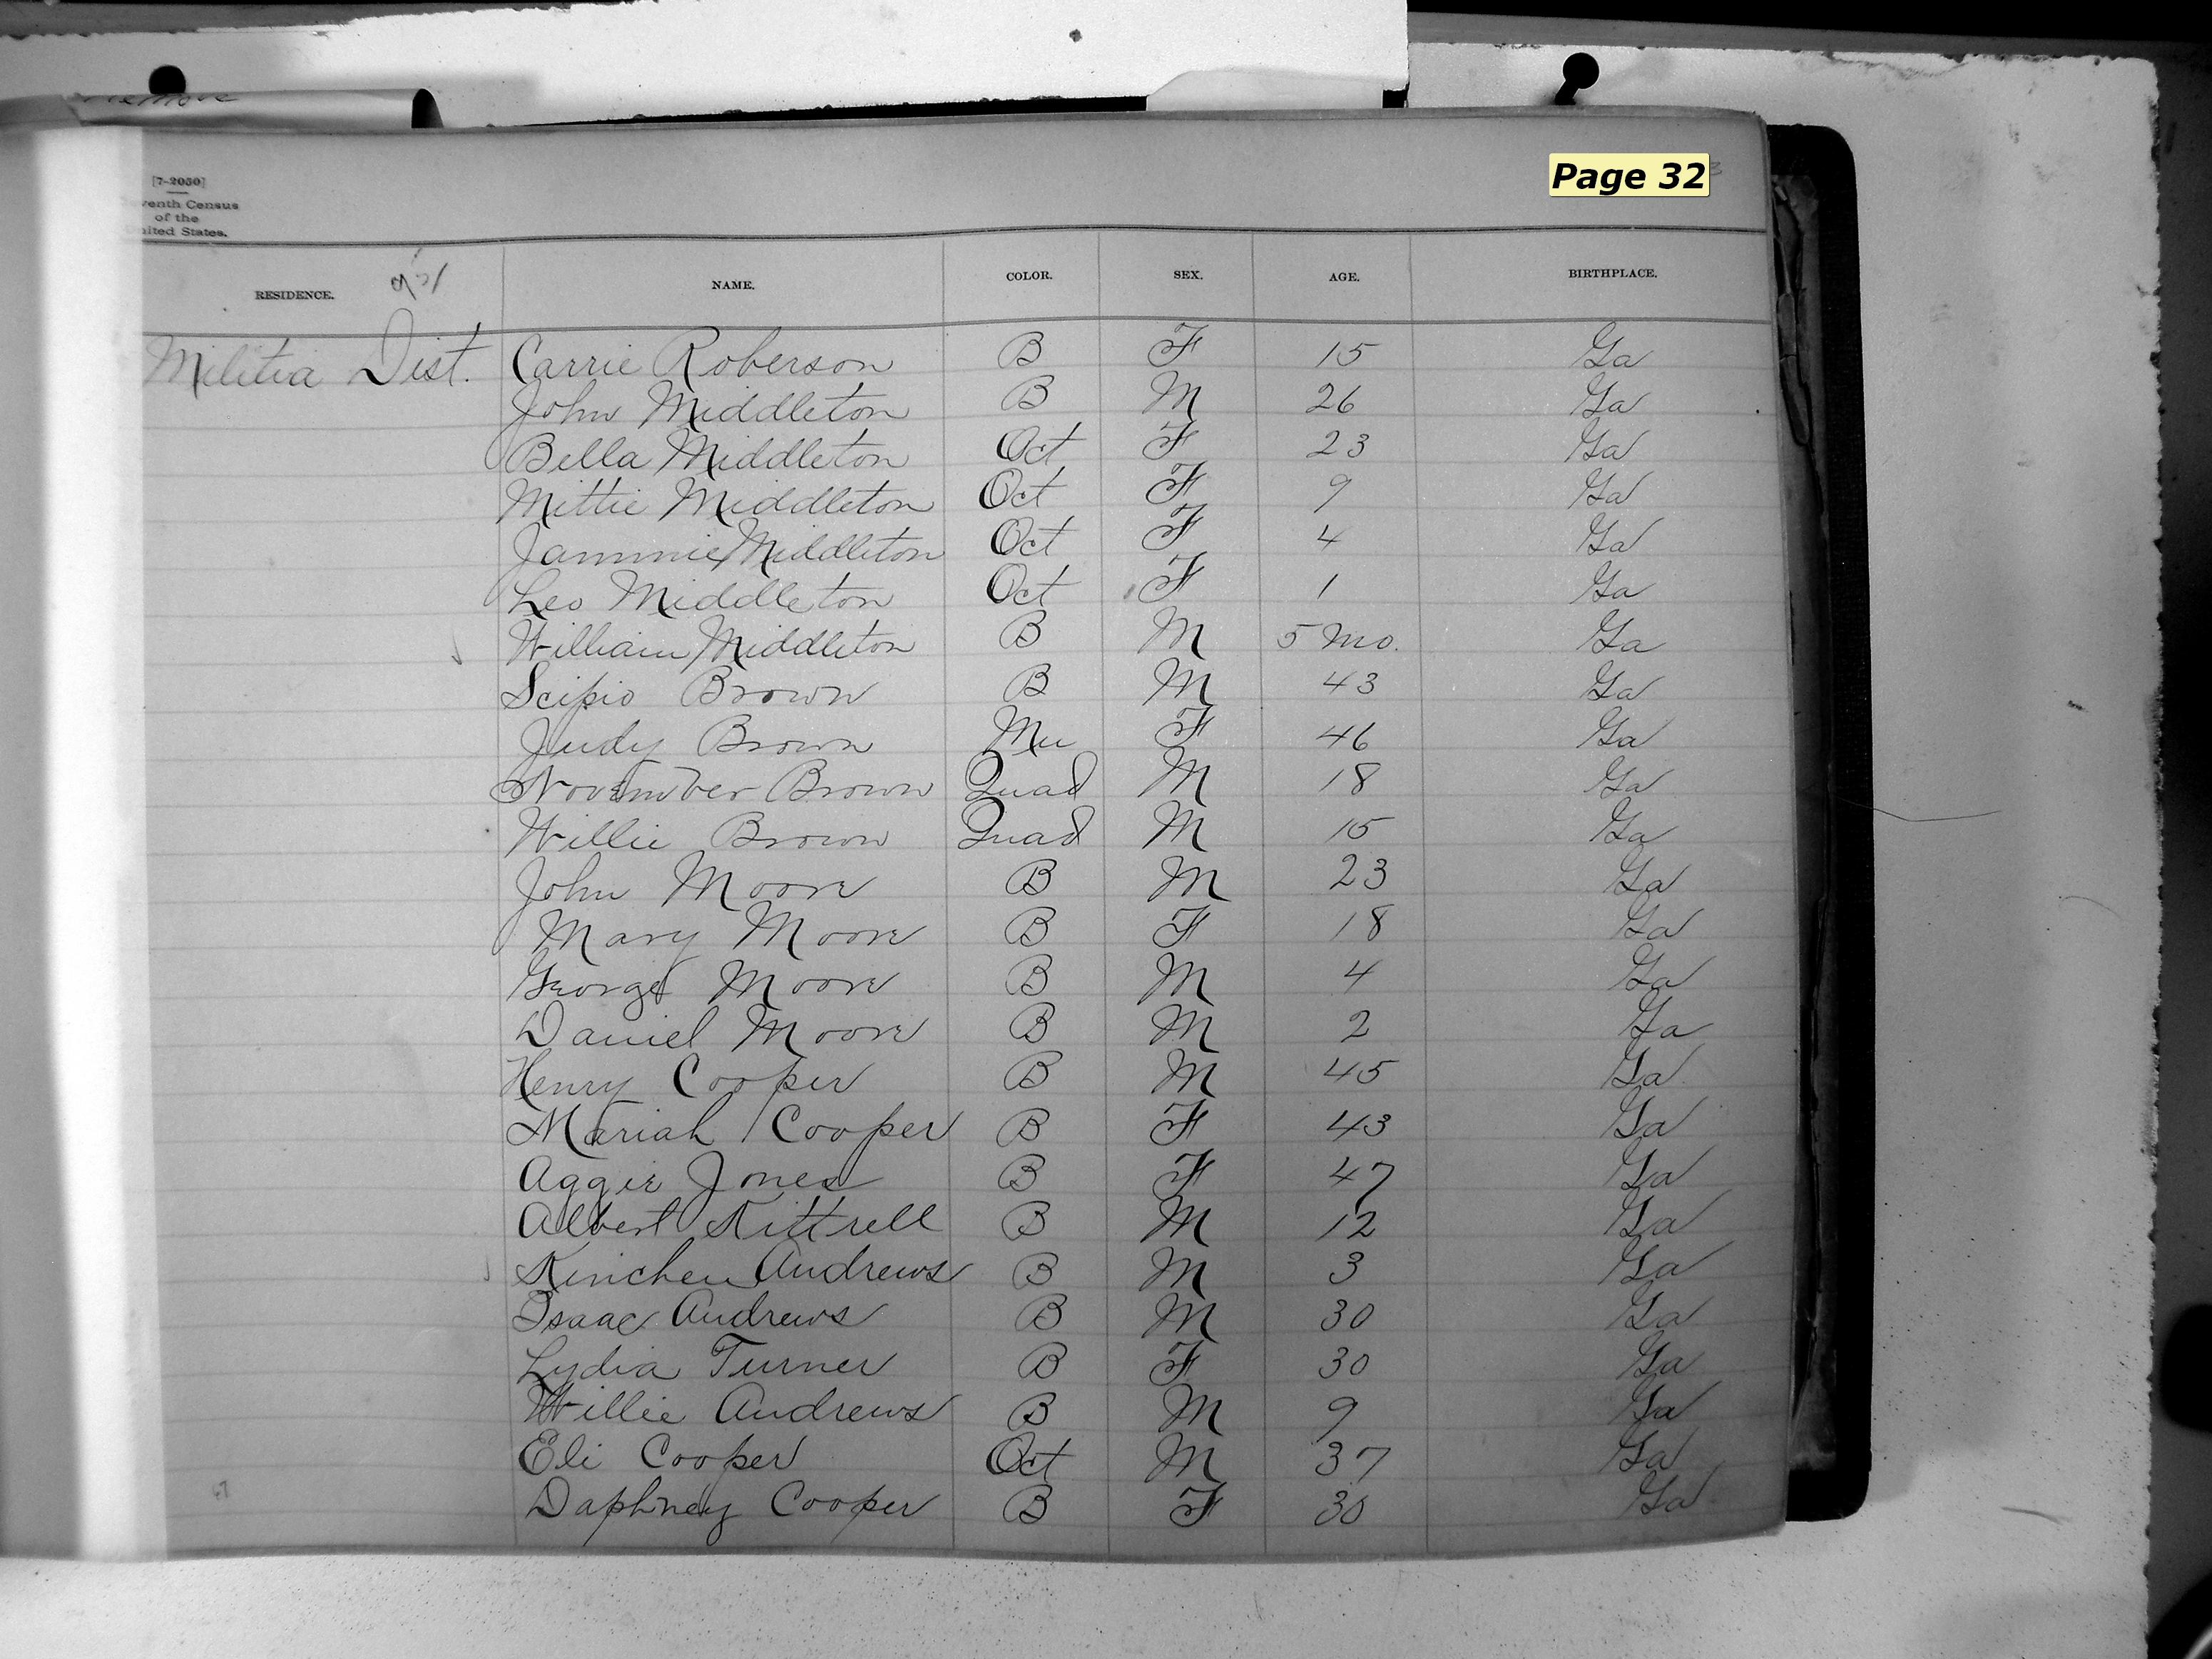 remove
Page 32
[7-2050]
venth Census
of the
nited States.
RESIDENCE. NAME. COLOR. SEX. AGE. BIRTHPLACE.
Militia Dist. Carrie Roberson B F 15 Ga
John Middleton B M 26 Ga
Bella Middleton Oct F 23 Ga
Mittie Middleton Oct F 9 Ga
Jammie Middleton Oct F 4 Ga
Leo Middleton Oct F 1 Ga
William Middleton B M 5 mo. Ga
Scipio Brown B M 43 Ga
Judy Brown Mu F 46 Ga
November Brown Quad M 18 Ga
Willie Brown Quad M 15 Ga
John Moore B M 23 Ga
Mary Moore B F 18 Ga
George Moore B M 4 Ga
Daniel Moore B M 2 Ga
Henry Cooper B M 45 Ga
Mariah Cooper B F 43 Ga
Aggie Jones B F 47 Ga
Albert Kittrell B M 12 Ga
Kinchen Andrews B M 3 Ga
Isaac Andrews B M 30 Ga
Lydia Turner B F 30 Ga
Willie Andrews B M 9 Ga
Eli Cooper Oct M 37 Ga
Daphney Cooper B F 30 Ga